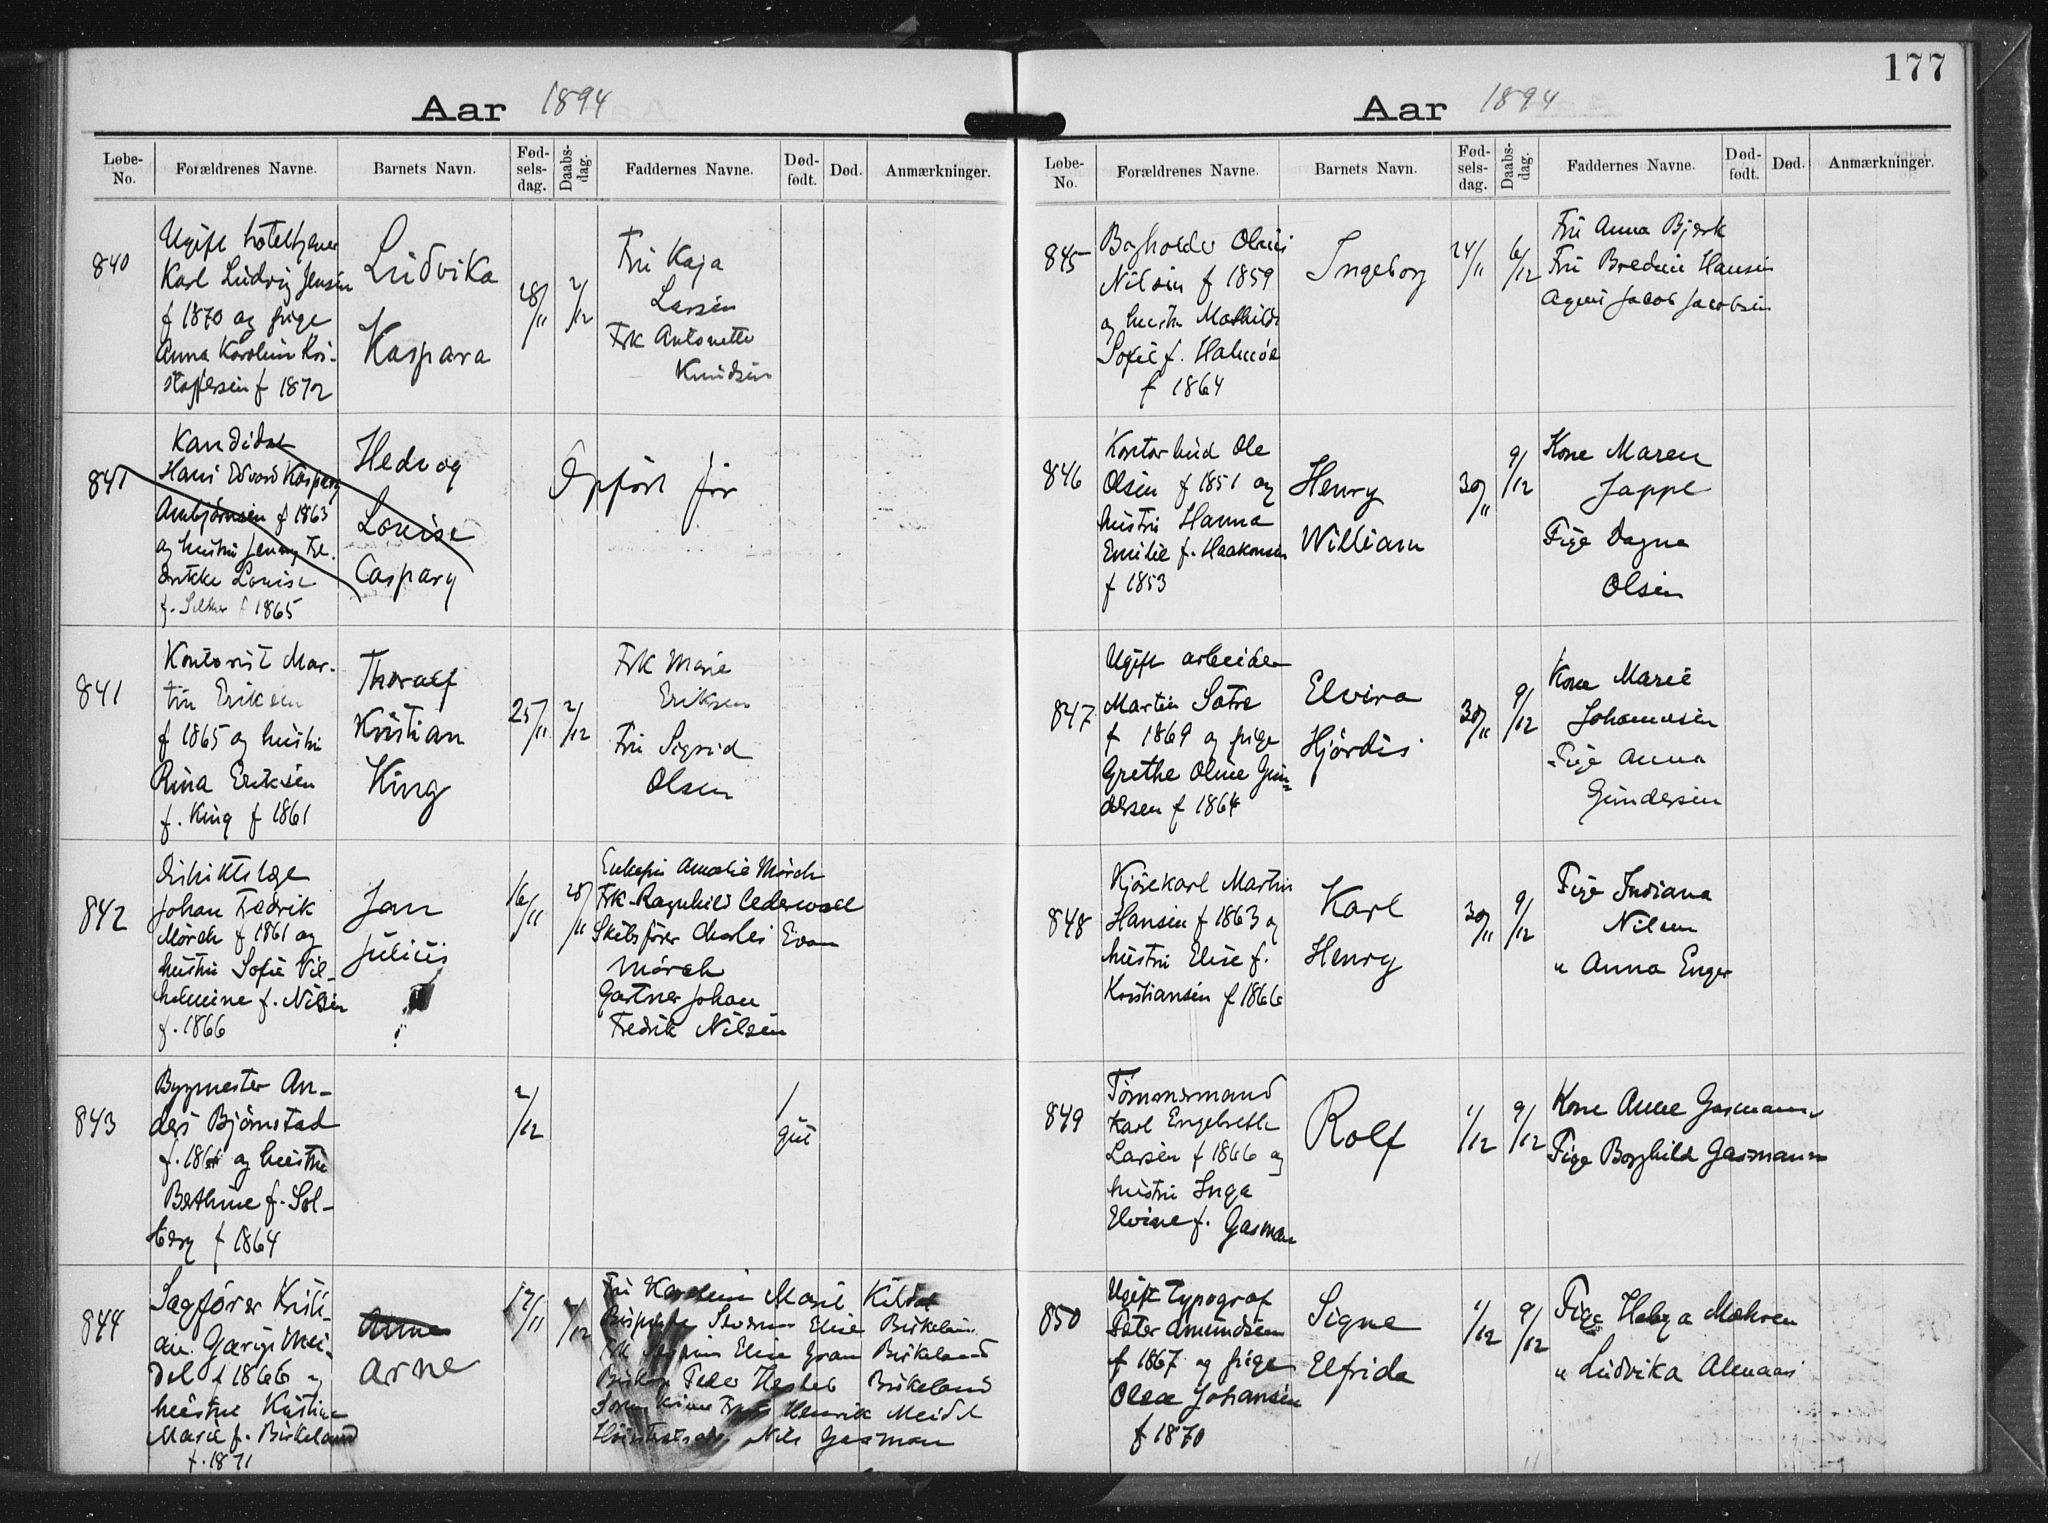 Aar 1894
Løbe-No.
Forældrenes Navne.
Barnets Navn.
Fød-sels-dag.
Daabs-dag.
Faddernes Navne.
Død-født.
Død.
Anmærkninger.
840
Ugift
Karl Ludvig Jensen
f 1870 og pige
Anna Karoline Kri-
stoffersen f 1872
Ludvika
Kaspara
28/11
2/12
Fru Kaja
Larsen
Frk Antonette
Knudsen
841
Kandidat
Hans Edvard Kaspary
Ambjørnsen f 1863
og hustru Jenny Fre-
drikke Louise
f. 1865
Hedvig
Louise
Caspary
Opført før
841
Kontorist Mar-
tin Eriksen
f 1865 og hustru
Rina Eriksen
f. King f 1861
Thoralf
Kristian
King
25/11
2/12
Frk Marie
Eriksen
Fru Sigrid
Olsen
842
Distriktslæge
Johan Fredrik
Mørch f 1861 og
hustru Sofie Vil-
helmine f. Nilsen
f. 1866
Jan
Julius
16/11
28/11
Enkefru Amalie Mørch
Frk. Ragnhild Cederwall
Skibsfører Charles Evan
Mørch
Gartner Johan
Fredrik Nilsen
843
Bygmester An-
ders Bjørnstad
f. 1864 og hustru
Berthine f. Sol-
berg f 1864
2/12
1
gut
844
Sagfører Kristi-
an Garup Mei-
del f 1866 og
hustru Kristine
Marie f. Birkeland
f. 1871
Anna
Arne
17/11
2/12
Fru Karoline Marie Kildal
Elise Birkeland
Frk Elise Gran Birkeland
Biskop Peder Hersleb Birkeland
Henrik Meidel
Nils Gasman
177
Aar 1894
Løbe-No.
Forældrenes Navne.
Barnets Navn.
Fød-sels-dag.
Daabs-dag.
Faddernes Navne.
Død-født.
Død.
Anmærkninger.
845
Bogholder Olaus
Nilsen f 1859
og hustr Mathilde
Sofie f. Halmøe
f 1864
Ingeborg
24/11
6/12
Fru Anna Bjerk
Fru Bredine Hansen
Agent Jacob Jacobsen
846
Kontorbud Ole
Olsen f 1851 og
hustru Hanna
Emilie f. Haakonsen
f 1853
Henry
William
30/11
9/12
Kone Maren
Jappe
Pige Dagna
Olsen
847
Ugift arbeider
Martin Sætre
f 1869 og pige
Grethe Oline Gun-
dersen f 1864
Elvira
Hjördis
30/11
9/12
Kone Marie
Johannesen
Pige Anna
Gundersen
848
Kjørekarl Martin
Hansen f 1863 og
hustru Elise f.
Kristiansen f 1866
Karl
Henry
30/11
9/12
Pige Indiana
Nilsen
" Anna Enger
849
Tømmermand
Karl Engebreth
Larsen f 1866 og
hustru Inga
Elvine f. Gasman
Rolf
1/12
9/12
Kone Anne Gasmann
Pige Borghild Gasmann
850
Ugift typograf
Peter Amundsen
f 1867 og pige
Olea Johansen
f 1870
Signe
Elfrida
1/12
9/12
Pige Helga Mæhren
" Ludvika Alemaas